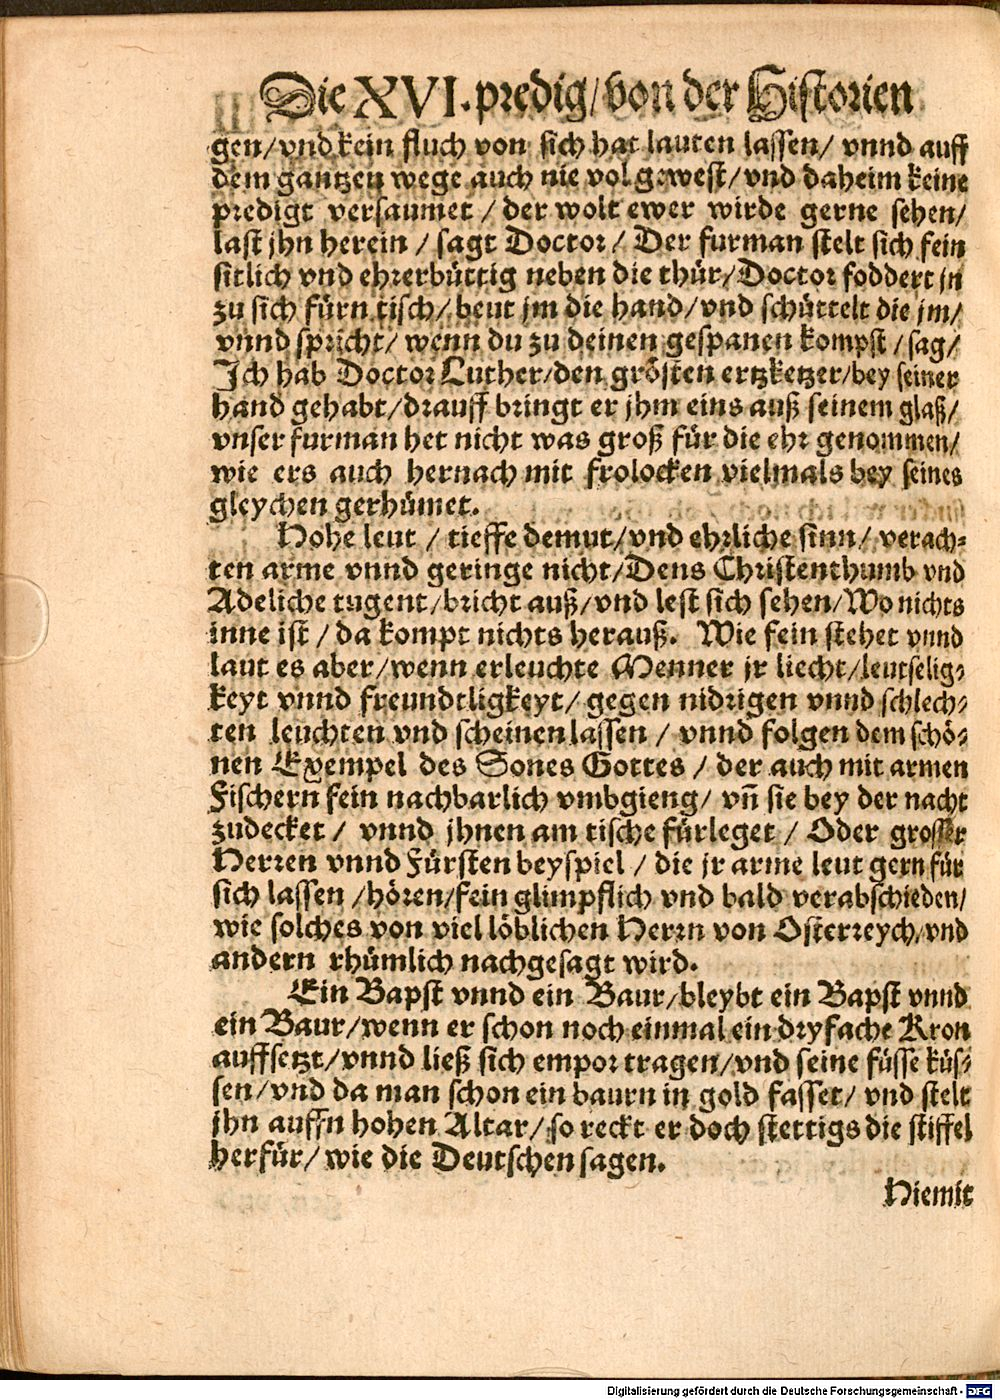 Die XVI. predig/von der Historien
gen/vnd kein fluch von sich hat lauten lassen/ vnnd auff
dem gantzen wege auch nie vol gewest/vnd daheim keine
predigt versaumet / der wolt ewer wirde gerne sehen/
last jhn herein / sagt Doctor/ Der furman stelt sich fein
sitlich vnd ehrerbüttig neben die thür/Doctor foddert jn
zu sich fürn tisch/ beut jm die hand/vnd schüttelt die jm/
vnnd spricht/ wenn du zu deinen gespanen kompst /sag/
Ich hab Doctor Luther/den grösten ertzketzer/bey seiner
hand gehabt/drauff bringt er jhm eins auß seinem glaß/
vnser furman het nicht was groß für die ehr genommen/
wie ers auch hernach mit frolocken vielmals bey seines
gleychen gerhümet.
Hohe leut / tieffe demut/vnd ehrliche sinn/ verach-
ten arme vnnd geringe nicht/Dens Christenthumb vnd
Adeliche tugent/bricht auß/vnd lest sich sehen/Wo nichts
inne ist / da kompt nichts herauß. Wie fein stehet vnnd
laut es aber/wenn erleuchte Menner jr liecht/leutselig-
keyt vnnd freundtligkeyt/ gegen nidrigen vnnd schlech-
ten leuchten vnd scheinen lassen / vnnd folgen dem schö-
nen Exempel des Sones Gottes / der auch mit armen
Fischern fein nachbarlich vmbgieng/ vñ sie bey der nacht
zudecket / vnnd jhnen am tische fürleget / Oder grosser
Herren vnnd Fürsten beyspiel / die jr arme leut gern für
sich lassen /hören/fein glimpflich vnd bald verabschieden/
wie solches von viel löblichen Herrn von Osterreych/vnd
andern rhümlich nachgesagt wird.
Ein Bapst vnnd ein Baur/bleybt ein Bapst vnnd
ein Baur/wenn er schon noch einmal ein dryfache Kron
auffsetzt/vnnd ließ sich empor tragen/vnd seine füsse küs-
sen/vnd da man schon ein baurn in gold fasset/ vnd stelt
jhn auffn hohen Altar/ so reckt er doch stettigs die stiffel
herfür/ wie die Deutschen sagen.
Hiemit
Digitalisierung gefördert durch die Deutsche Forschungsgemeinschaft - DFG